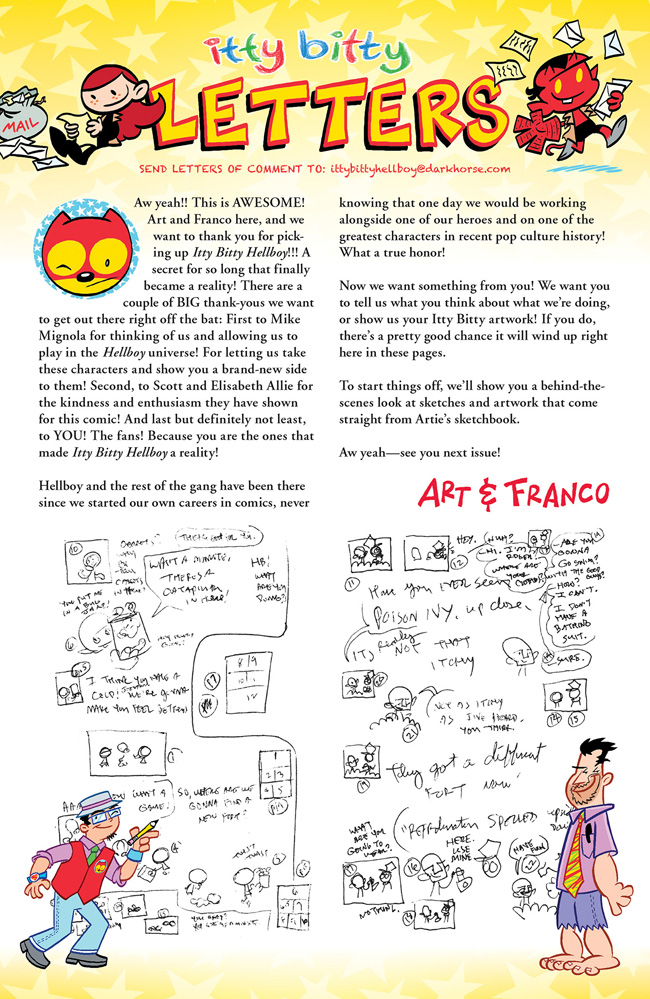 itty bitty
LETTERS
MAIL
SEND LETTERS OF COMMENT TO: ittybittyhellboy@darkhorse.com
Aw yeah!! This is AWESOME!
Art and Franco here, and we
want to thank you for pick-
ing up Itty Bitty Hellboy!!! A
secret for so long that finally
became a reality! There are a
couple of BIG thank-yous we want
to get out there right off the bat: First to Mike
Mignola for thinking of us and allowing us to
play in the Hellboy universe! For letting us take
these characters and show you a brand-new side
to them! Second, to Scott and Elisabeth Allie for
the kindness and enthusiasm they have shown
for this comic! And last but definitely not least,
to YOU! The fans! Because you are the ones that
made Itty Bitty Hellboy a reality!
Hellboy and the rest of the gang have been there
since we started our own careers in comics, never
knowing that one day we would be working
alongside one of our heroes and on one of the
greatest characters in recent pop culture history!
What a true honor!
Now we want something from you! We want you
to tell us what you think about what we're doing,
or show us your Itty Bitty artwork! If you do,
there's a pretty good chance it will wind up right
here in these pages.
To start things off, we'll show you a behind-the-
scenes look at sketches and artwork that come
straight from Artie's sketchbook.
Aw yeah—see you next issue!
ART & FRANCO
10
WAIT A MINUTE,
THERES A
CATAPULT
IN HERE!
HB!
WHAT
ARE YOU
DOING?
YOU PUT ME
IN A
I THINK YOU HAVE A
COLD! WE'RE GONNA
MAKE YOU FEEL BETTER!
8/9
17
GAME!
SO, WHERE ARE WE
GONNA FIND A
NEW FORT?
TWIST
TWIST
HEY.
HUH?
HI. I'M
WHERE ARE
YOUR
CLOTHES?
ARE YOU
GONNA
GO SWIM?
WITH THE GOOD
GUYS?
I CAN'T.
I DON'T
HAVE A
BATHING
SUIT.
SURE.
11
12
Have you EVER seen
POISON IVY, up close.
ITS Really
NOT THAT
ITCHY
NOT AS ITCHY
AS I'VE HEARD.
YOU THINK.
21
14
15
They got a different
FORT NOW!
WHAT
ARE YOU
GOING TO
WEAR?
HERE.
USE
MINE.
16
HAVE
FUN!
NOTHING.